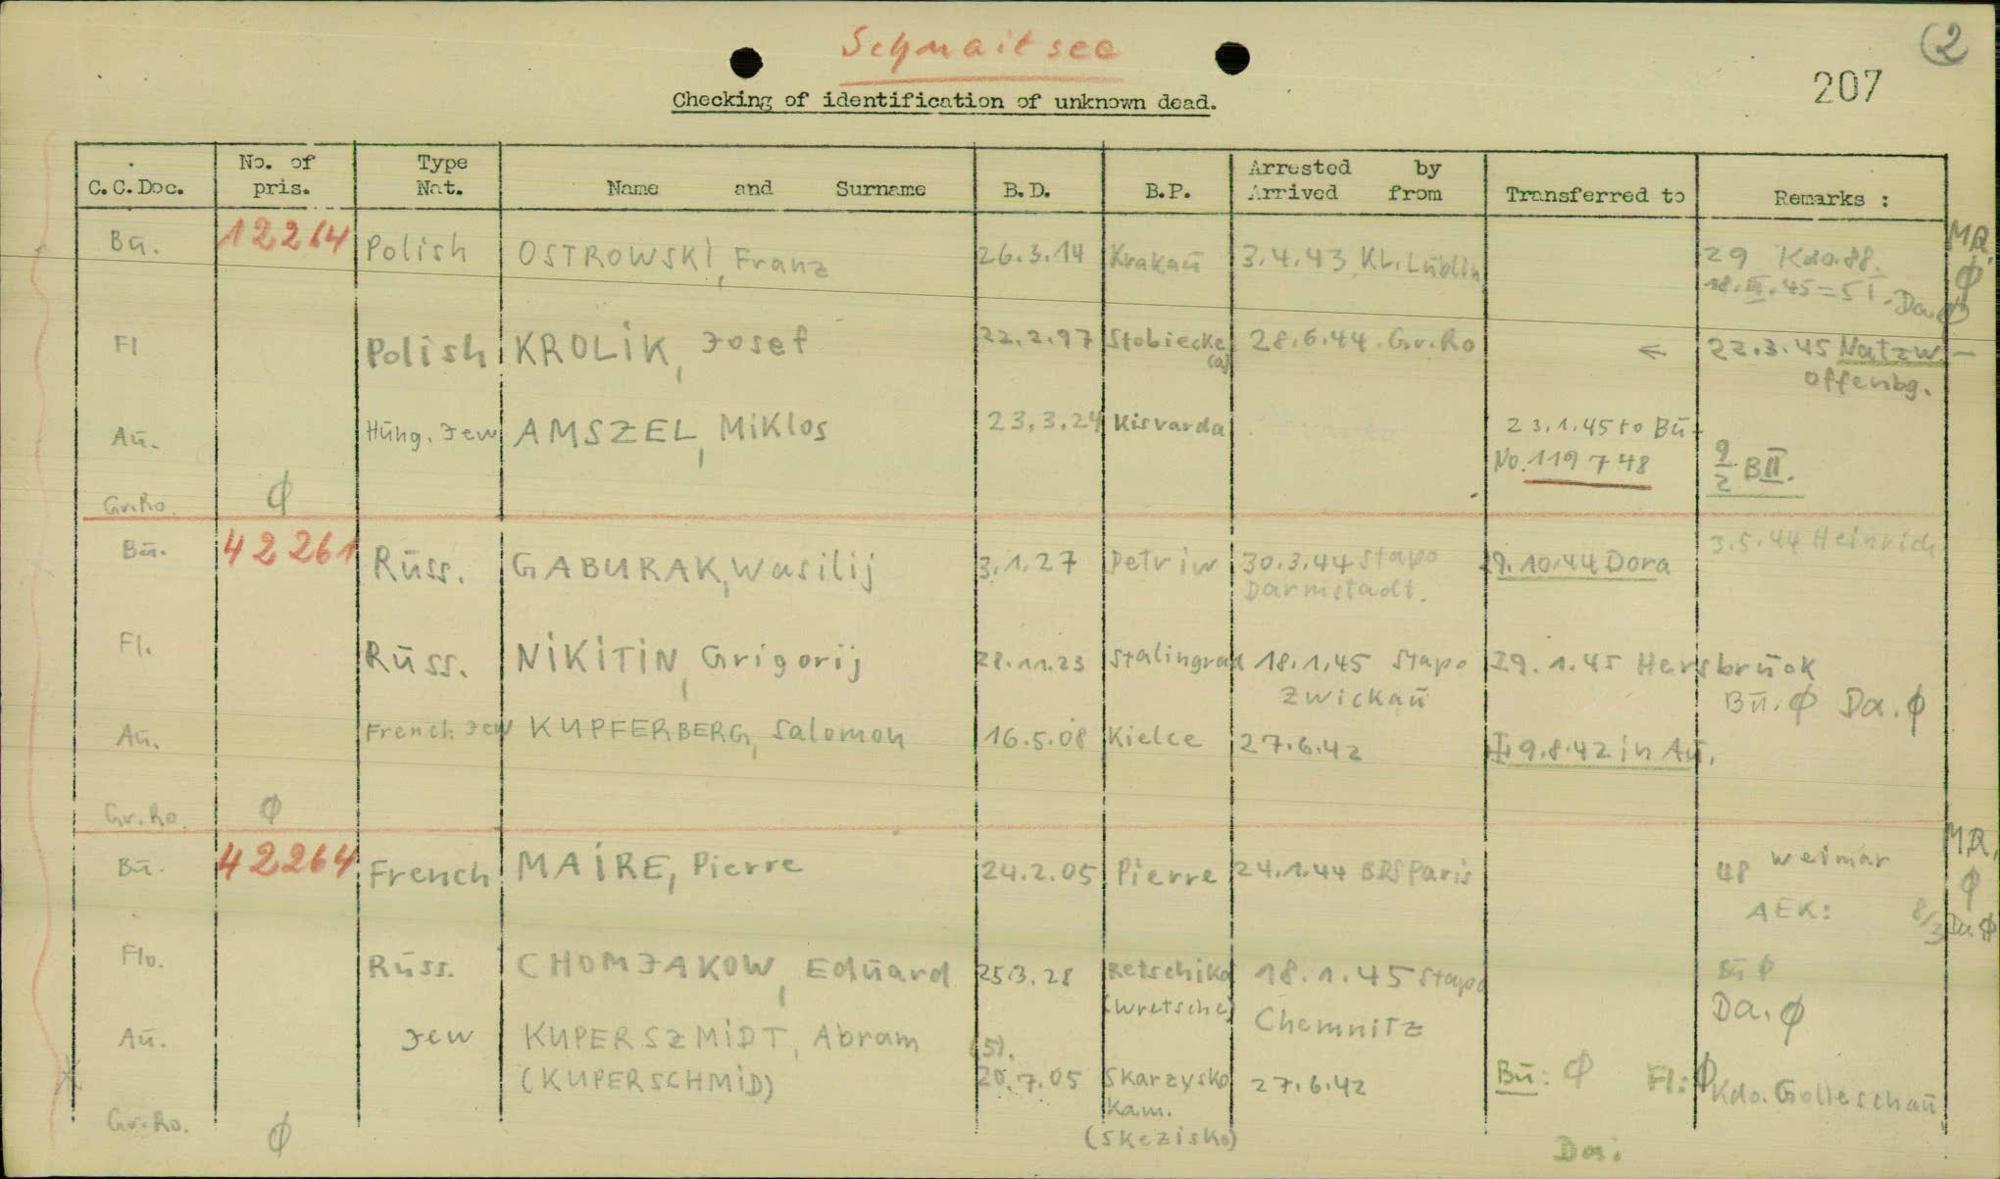 Schnaitsee
2
207
Checking of identification of unknown dead.
C.C.Doc. No. of pris. Type Nat. Name and Surname B.D. B.P. Arrested by Arrived from Transferred to Remarks :
Bü. 12264 Polish OSTROWSKI, Franz 26.3.14 Krakau 3.4.43 KL. Lublin 29 Kdo.88. MR. ϕ
18.III.45=51. Da. ϕ
Fl Polish KROLIK, Josef 22.2.97 Stobiecke 28.6.44. Gr.Ro ← 22.3.45 Natzw. –
Offenbg.
Au. Hung. Jew AMSZEL, Miklos 23.3.24 Kisvarda 23.1.45 to Bü-
No. 119748 9/2 BII.
Gr.Ro. ϕ
Bü. 42261 Russ. GABURAK, Wasilij 3.1.27 Petriw 30.3.44 Stapo 9.10.44 Dora 3.5.44 Heinrich
Darmstadt.
Fl. Russ. NIKITIN, Grigorij 28.11.23 Stalingrad 18.1.45 Stapo 29.1.45 Hersbruck
Zwickau Bü. ϕ Da. ϕ
Au. French Jew KUPFERBERG, Salomon 16.5.08 Kielce 27.6.42 9.8.42 in Au.
Gr.Ro. ϕ
Bü. 42264 French MAIRE, Pierre 24.2.05 Pierre 24.1.44 BDS Paris 48 Weimar MR. ϕ
AEK: 8/3 Da ϕ
Flo. Russ. CHOMJAKOW, Eduard 25.3.28 Retschika 18.1.45 Stapo Bü ϕ
(Wretsche) Chemnitz Da. ϕ
Au. Jew KUPERSZMIDT, Abram (5).
(KUPERSCHMID) 20.7.05 Skarzysko 27.6.42 Bü: ϕ Fl: ϕ Kdo. Golleschau
Kam.
Gr.Ro. ϕ (Skezisko)
Da: